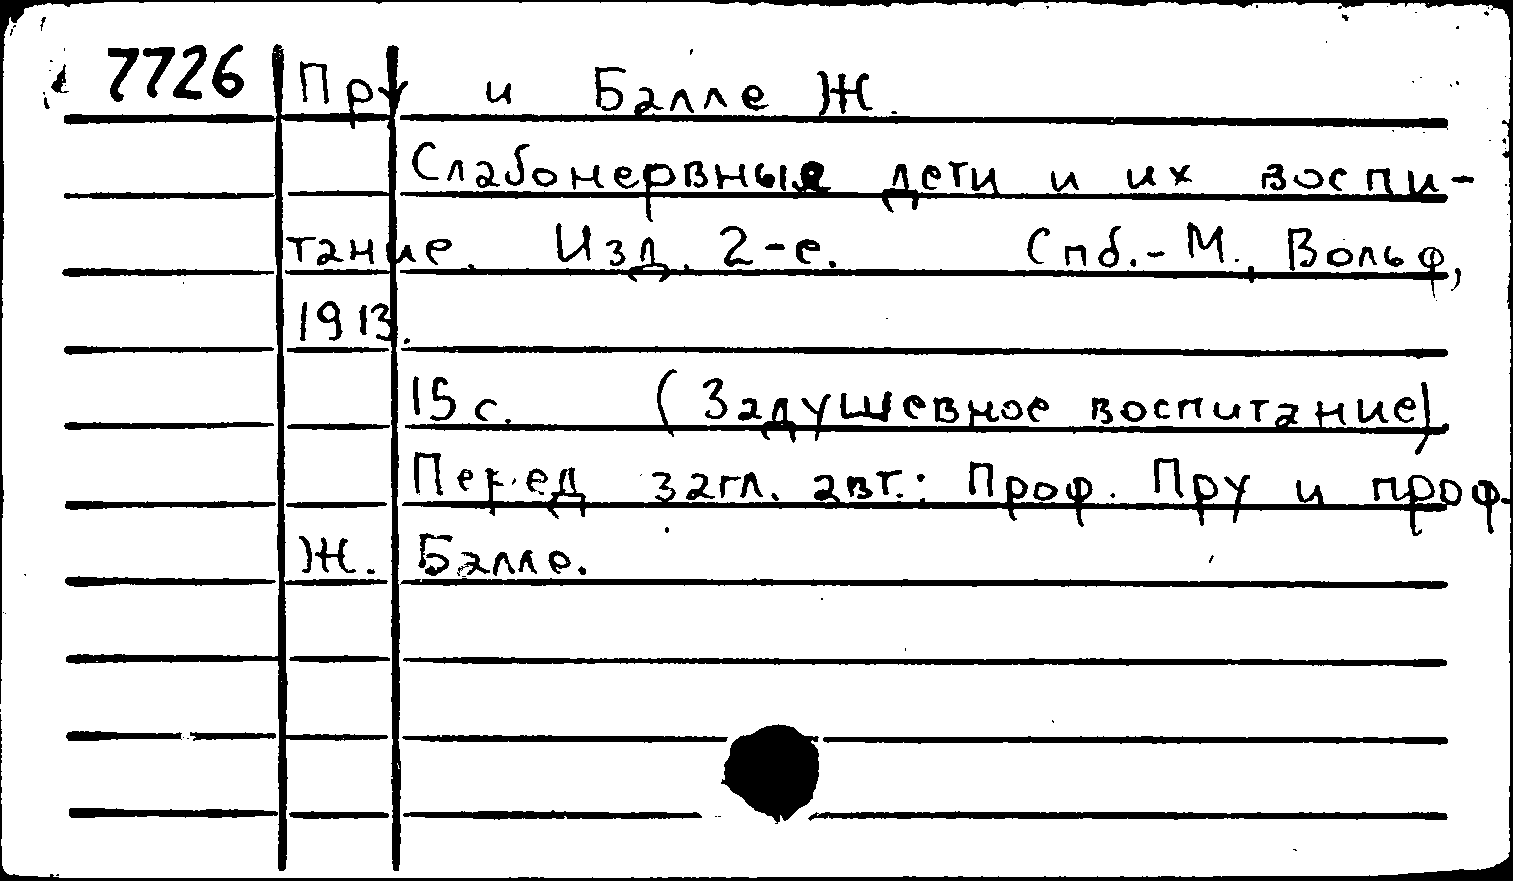 7726 Пру и Балле Ж.
Слабонервные дети и их воспи-
тание. Изд. 2-е. Спб.-М., Вольф,
1913.
15 с. (Задушевное воспитание)
Перед загл. авт.: Проф. Пру и проф.
Ж. Балле.